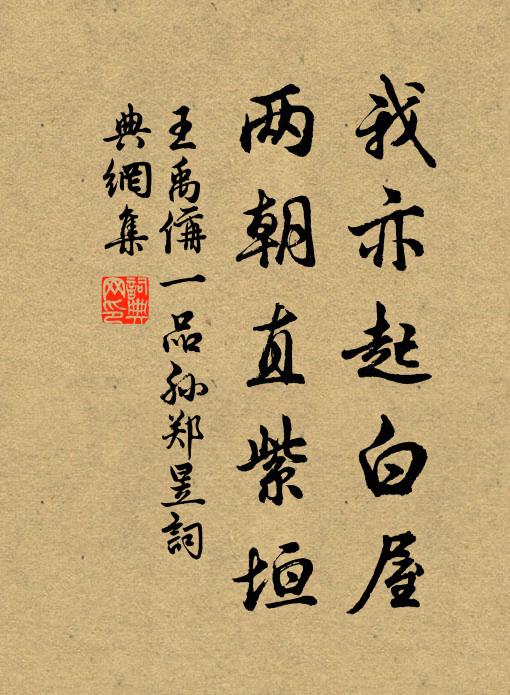 我亦起白屋
两朝直紫垣
王禹偁一品孙郑昱詞
典網集
詞典
网印